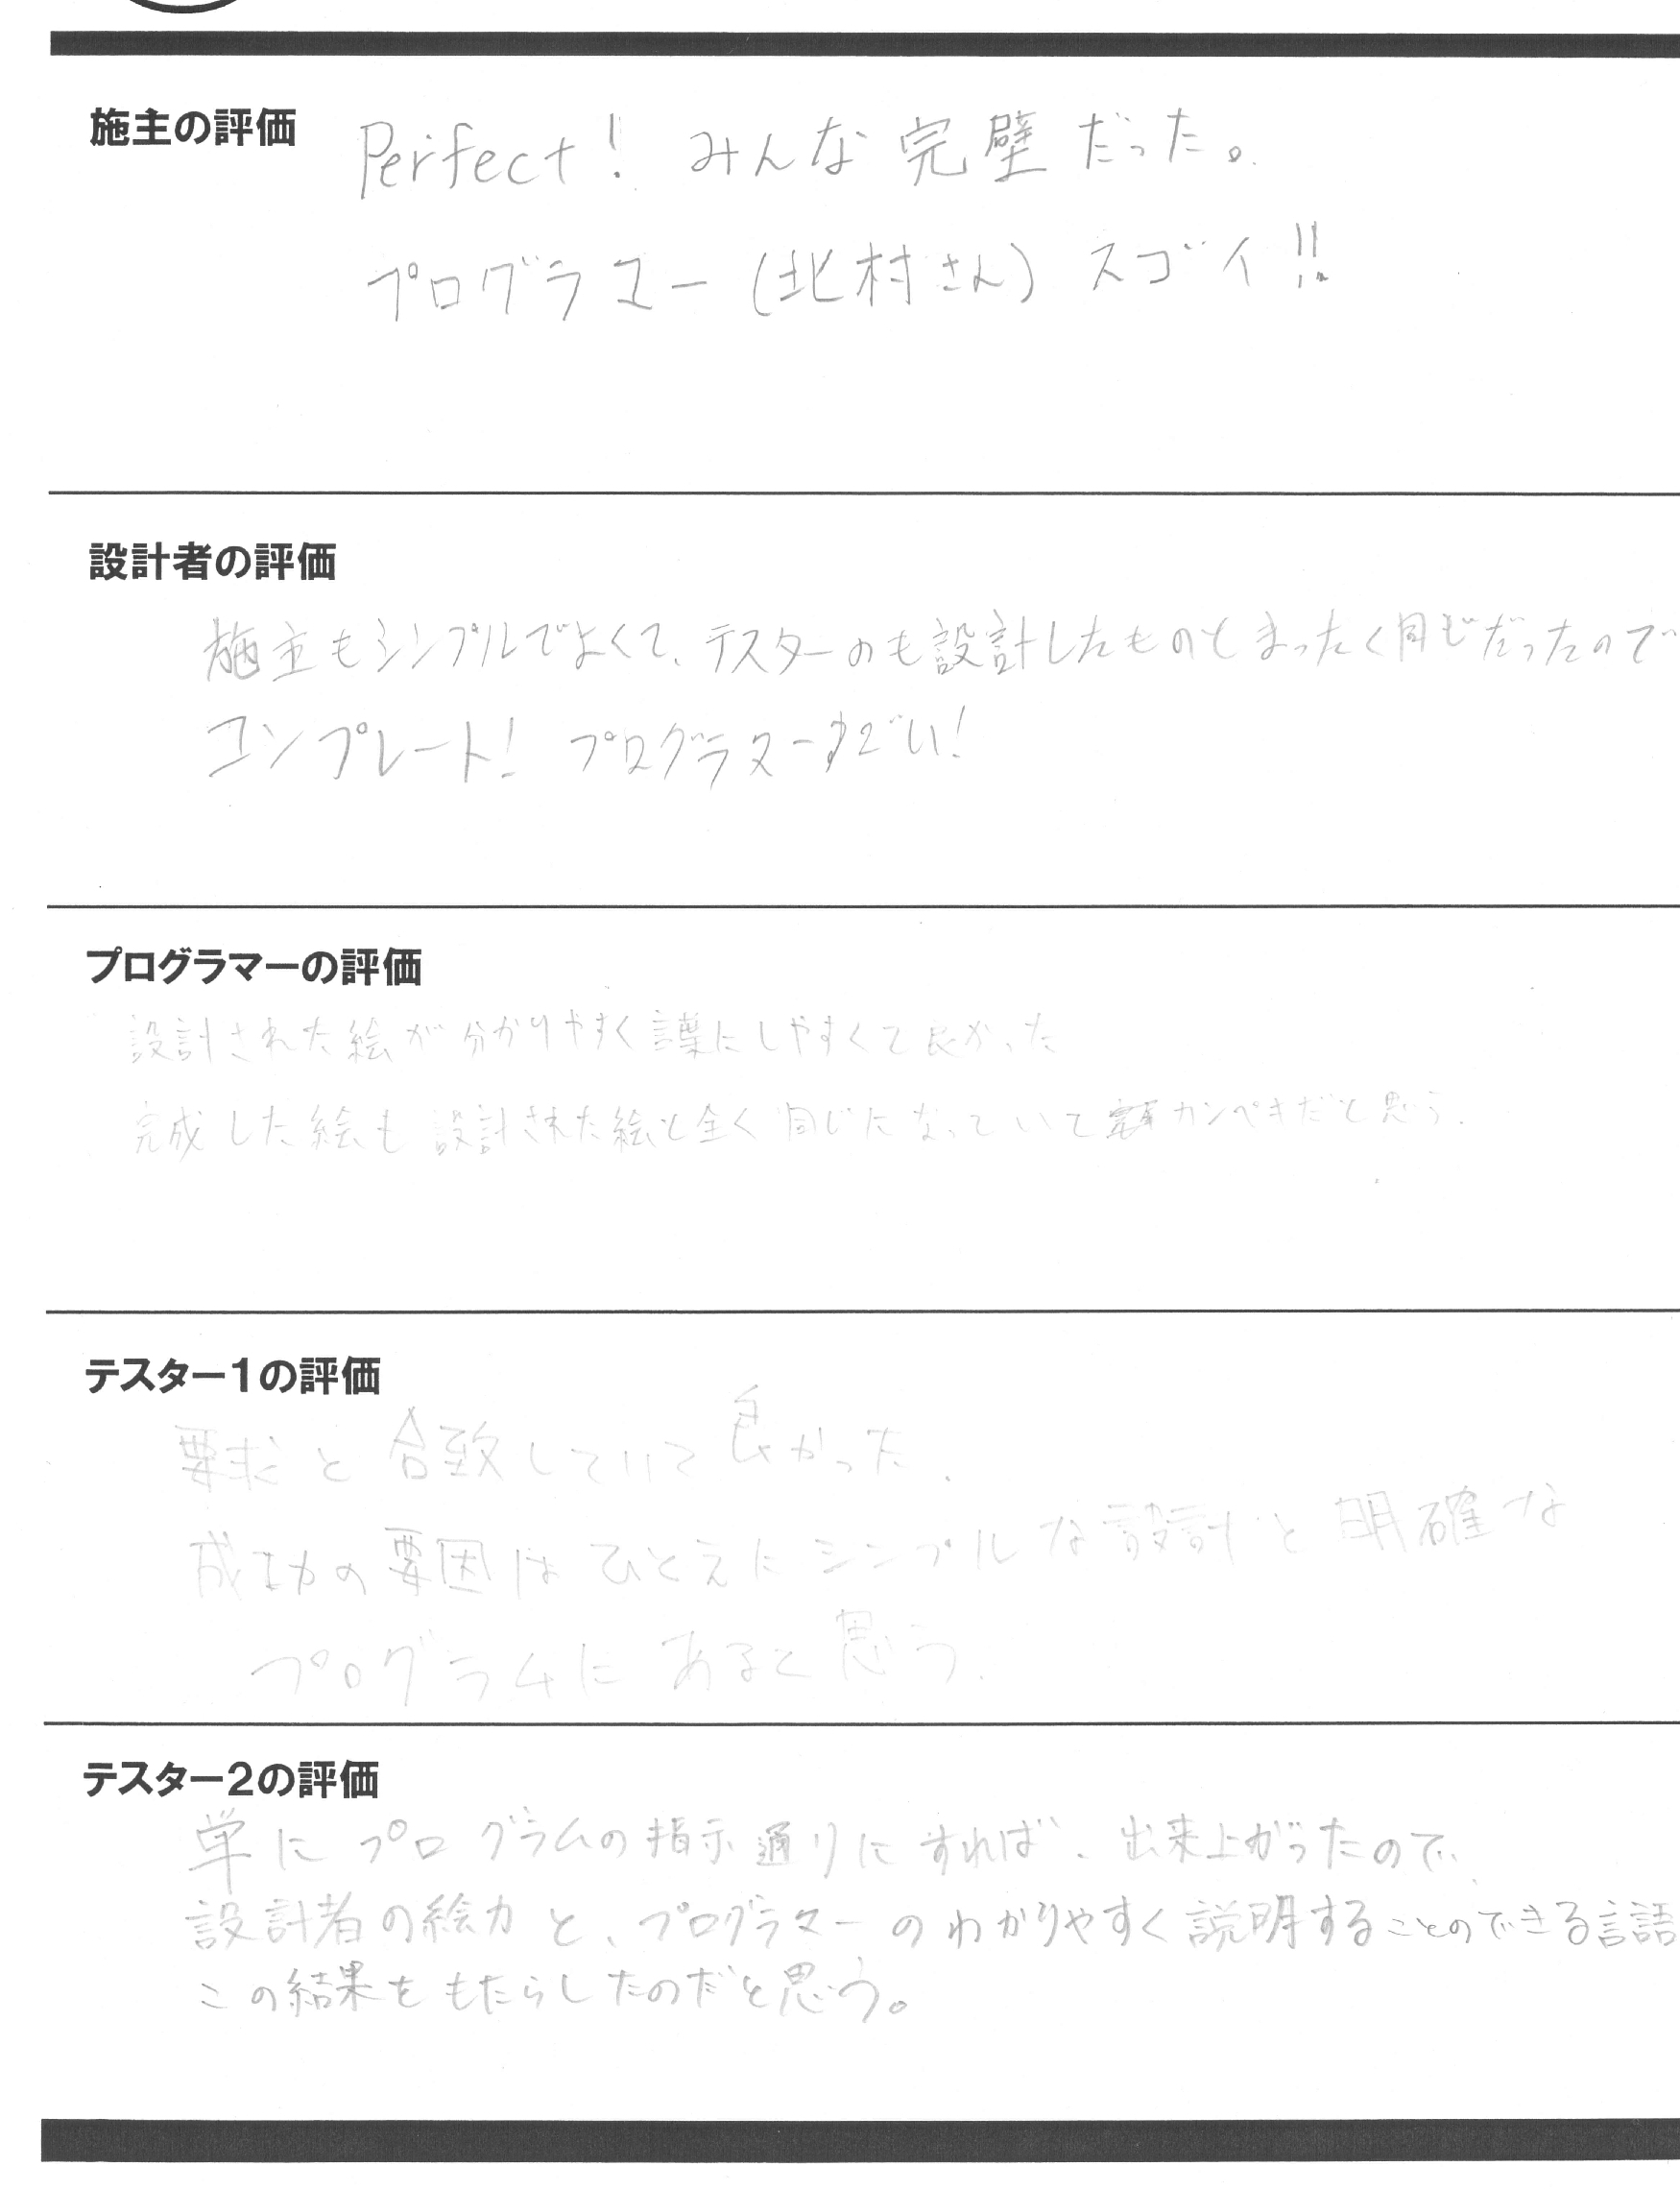 施主の評価
Perfect! みんな完璧だった。
プログラマー(北村さん) スゴイ!!
設計者の評価
施主もシンプルでよくて、テスターのも設計したものとまったく同じだったので
コンプレート! プログラマーすごい!
プログラマーの評価
設計された絵が分かりやすく言葉にしやすくて良かった
完成した絵も設計された絵と全く同じになっていてカンペキだと思う.
テスター1の評価
要求と合致していて良かった.
成功の要因はひとえにシンプルな設計と明確な
プログラムにあると思う.
テスター2の評価
単にプログラムの指示通りにすれば、出来上がったので、
設計者の絵力と、プログラマーのわかりやすく説明することのできる言語
この結果をもたらしたのだと思う。